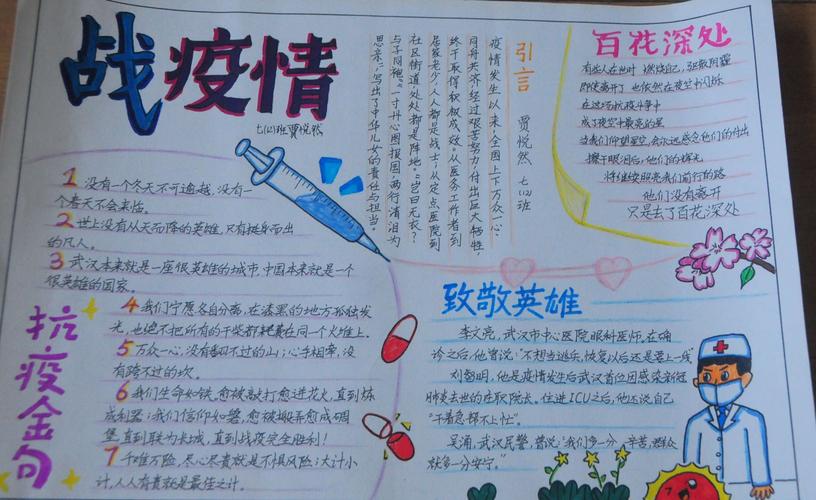 战疫情
七(1)班 贾悦然
引言
贾悦然 七(1)班
疫情发生以来,全国上下万众一心,
同舟共济,经过艰苦努力,付出巨大牺牲,
终于取得积极成效。从医务工作者到
居家老少,人人都是战士;从定点医院到
社区街道,处处都是阵地。“岂曰无衣?
与子同袍。”“寸寸丹心图报国,两行清泪为
思亲。”写出了中华儿女的责任与担当。
百花深处
有些人在世时 燃烧自己,驱散阴霾
即使离开了 也依然在夜空中闪烁
在这场抗疫斗争中
成了夜空中最亮的星
当我们仰望星空,会永远感念他们的付出
擦干眼泪后,他们的辉光
将继续照亮我们前行的路
他们没有离开
只是去了百花深处
抗疫金句
1 没有一个冬天不可逾越,没有一
个春天不会来临。
2 世上没有从天而降的英雄,只有挺身而出
的凡人。
3 武汉本来就是一座很英雄的城市,中国本来就是一个
很英雄的国家。
4 我们宁愿各自分离,在漆黑的地方孤独发
光,也绝不把所有的干柴都 在同一个火堆上。
5 万众一心,没有翻不过的山;心手相牵,没
有跨不过的坎。
6 我们生命如铁,愈被敲打愈迸花火,直到炼
成利器;我们信仰如磐,愈被搬弄愈成碉
堡,直到联为长城,直到战疫完全胜利!
7 千难万险,尽心尽责就是不惧风险;大计小
计,人人有责就是最佳之计。
致敬英雄
李文亮,武汉市中心医院眼科医师,在确
诊之后,他曾说:“不想当逃兵,恢复以后还是要上一线”
刘智明,他是疫情发生后武汉首位因感染新冠
肺炎去世的在职院长。住进ICU之后,他还说自己
“干着急 帮不上忙”。
吴涌,武汉民警,曾说:“我们多一分 辛苦,群众
就多一分安宁。”